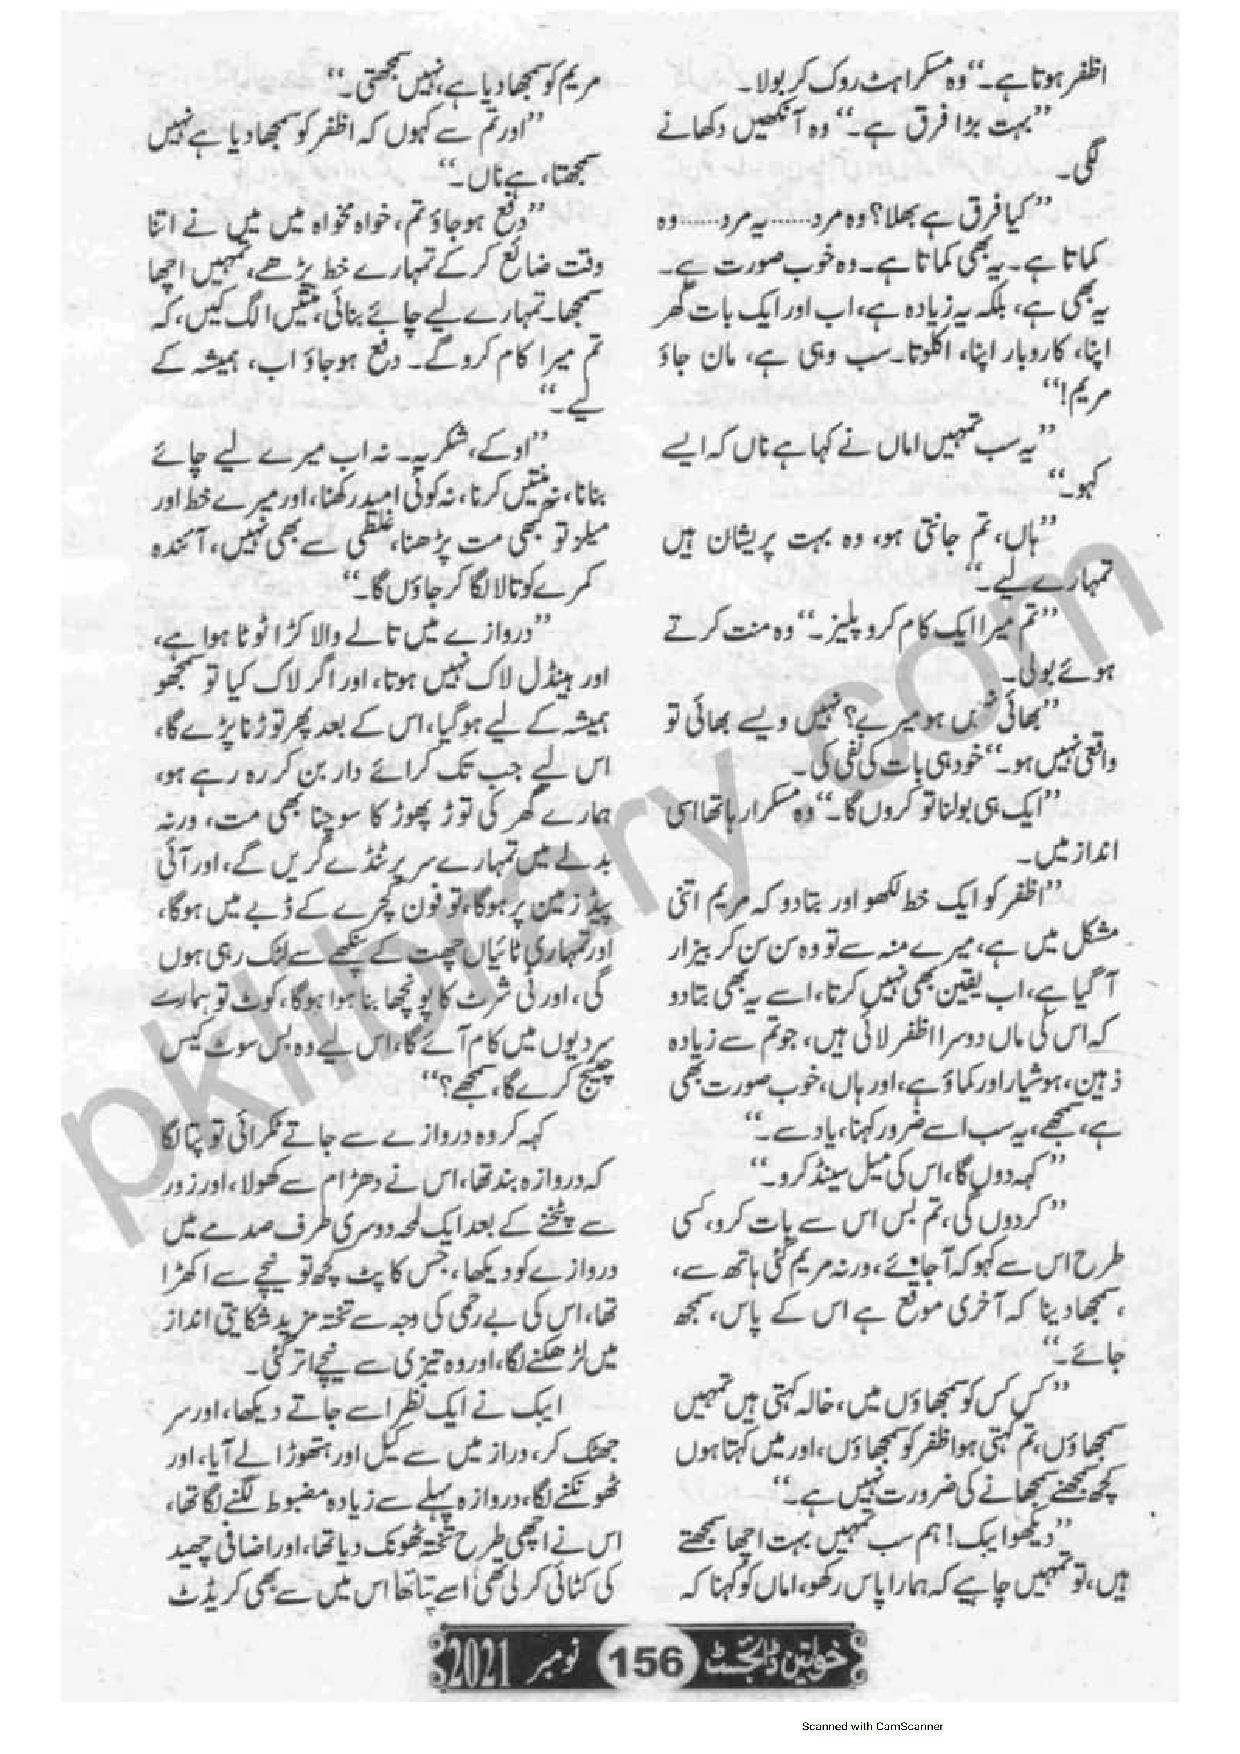 اظفر ہوتا ہے۔“ وہ مسکراہٹ روک کر بولا۔
”بہت بڑا فرق ہے۔“ وہ آنکھیں دکھانے
لگی۔
”کیا فرق ہے بھلا؟ وہ مرد...... یہ مرد...... وہ
کماتا ہے۔ یہ بھی کماتا ہے۔ وہ خوب صورت ہے۔
یہ بھی ہے، بلکہ یہ زیادہ ہے، اب اور ایک بات گھر
اپنا، کاروبار اپنا، اکلوتا۔ سب وہی ہے، مان جاؤ
مریم!“
”یہ سب تمہیں اماں نے کہا ہے ناں کہ ایسے
کہو۔“
”ہاں، تم جانتی ہو، وہ بہت پریشان ہیں
تمہارے لیے۔“
”تم میرا ایک کام کردو پلیز۔“ وہ منت کرتے
ہوئے بولی۔
”بھائی نہیں ہو میرے؟ نہیں ویسے بھائی تو
واقعی نہیں ہو۔“ خود ہی بات کی نفی کی۔
”ایک ہی بولنا تو کروں گا۔“ وہ مسکرا رہا تھا اسی
انداز میں۔
”اظفر کو ایک خط لکھو اور بتا دو کہ مریم اتنی
مشکل میں ہے، میرے منہ سے تو وہ سن سن کر بیزار
آگیا ہے، اب یقین بھی نہیں کرتا، اسے یہ بھی بتا دو
کہ اس کی ماں دوسرا اظفر لائی ہیں، جو تم سے زیادہ
ذہین، ہوشیار اور کماؤ ہے، اور ہاں، خوب صورت بھی
ہے، سمجھے، یہ سب اسے ضرور کہنا، یاد سے۔“
”کہہ دوں گا، اس کی میل سینڈ کرو۔“
”کردوں گی، تم بس اس سے بات کرو، کسی
طرح اس سے کہو کہ آجائے، ورنہ مریم گئی ہاتھ سے،
سمجھا دینا کہ آخری موقع ہے اس کے پاس، سمجھ
جائے۔“
”کس کس کو سمجھاؤں میں، خالہ کہتی ہیں تمہیں
سمجھاؤں، تم کہتی ہو اظفر کو سمجھاؤں، اور میں کہتا ہوں
کچھ سمجھنے سمجھانے کی ضرورت نہیں ہے۔“
”دیکھو ایبک! ہم سب تمہیں بہت اچھا سمجھتے
ہیں، تو تمہیں چاہیے کہ ہمارا پاس رکھو، اماں کو کہنا کہ
مریم کو سمجھا دیا ہے، نہیں سمجھتی۔“
”اور تم سے کہوں کہ اظفر کو سمجھا دیا ہے نہیں
سمجھتا، ہے ناں۔“
”دفع ہو جاؤ تم، خواہ مخواہ میں میں نے اتنا
وقت ضائع کر کے تمہارے خط پڑھے، تمہیں اچھا
سمجھا۔ تمہارے لیے چائے بنائی، منتیں الگ کیں، کہ
تم میرا کام کرو گے۔ دفع ہو جاؤ اب، ہمیشہ کے
لیے۔“
”اوکے، شکریہ۔ نہ اب میرے لیے چائے
بنانا، نہ منتیں کرنا، نہ کوئی امید رکھنا، اور میرے خط اور
میلو تو کبھی مت پڑھنا، غلطی سے بھی نہیں، آئندہ
کمرے کو تالا لگا کر جاؤں گا۔“
”دروازے میں تالے والا کڑا ٹوٹا ہوا ہے،
اور ہینڈل لاک نہیں ہوتا، اور اگر لاک کیا تو سمجھو
ہمیشہ کے لیے ہوگیا، اس کے بعد پھر توڑنا پڑے گا،
اس لیے جب تک کرائے دار بن کر رہ رہے ہو،
ہمارے گھر کی توڑ پھوڑ کا سوچنا بھی مت، ورنہ
بدلے میں تمہارے سر پر ٹنڈے گریں گے، اور آئی
پیڈ زمین پر ہوگا، تو فون کچرے کے ڈبے میں ہوگا،
اور تمہاری ٹائیاں چھت کے پنکھے سے لٹک رہی ہوں
گی، اور ٹی شرٹ کا پونچھا بنا ہوا ہوگا، کوٹ تو ہمارے
سردیوں میں کام آئے گا، اس لیے وہ بس سوٹ کیس
چینج کرے گا، سمجھے؟“
کہہ کر وہ دروازے سے جاتے ٹکرائی تو پتا لگا
کہ دروازہ بند تھا، اس نے دھڑام سے کھولا، اور زور
سے پٹخنے کے بعد ایک لمحہ دوسری طرف صدمے میں
دروازے کو دیکھا، جس کا پٹ کچھ تو نیچے سے اکھڑا
تھا، اس کی بے رحمی کی وجہ سے تختہ مزید شکایتی انداز
میں لڑھکنے لگا، اور وہ تیزی سے نیچے اتر گئی۔
ایبک نے ایک نظر اسے جاتے دیکھا، اور سر
جھٹک کر، دراز میں سے کیل اور ہتھوڑا لے آیا، اور
ٹھونکنے لگا، دروازہ پہلے سے زیادہ مضبوط لگنے لگا تھا،
اس نے اچھی طرح تختہ ٹھونک دیا تھا، اور اضافی چھید
کی کٹائی کرلی تھی اسے پتا تھا اس میں سے بھی کریڈٹ
خواتین ڈائجسٹ 156 نومبر 2021
pklibrary.com
Scanned with CamScanner